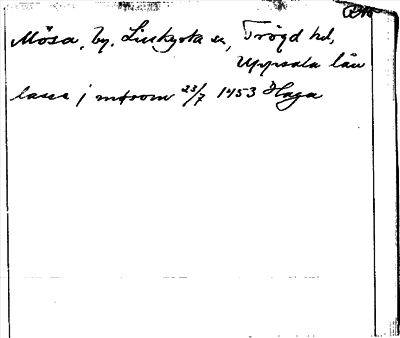 Mösa, by, Litslena sn, Trögd hd,
Uppsala län
lassa j mösom 23/7 1453 Haga